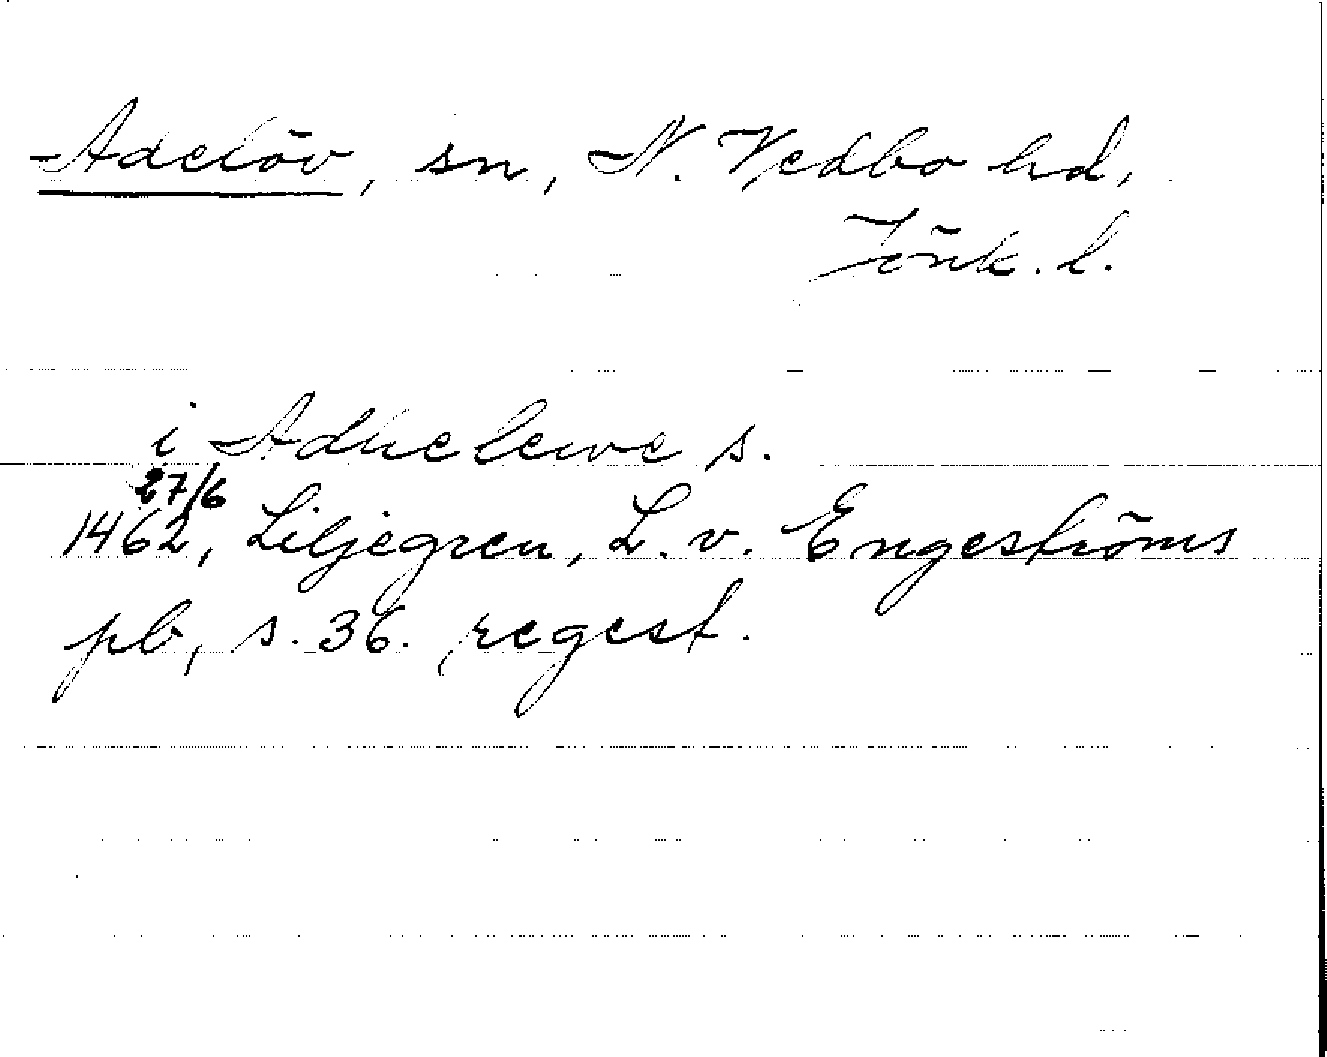 Adelöv, sn, N. Vedbo hd,
Jönk. l.
i Adhelewe s.
27/6
1462, Liljegren, L. v. Engeströms
pb, s. 36. regest.